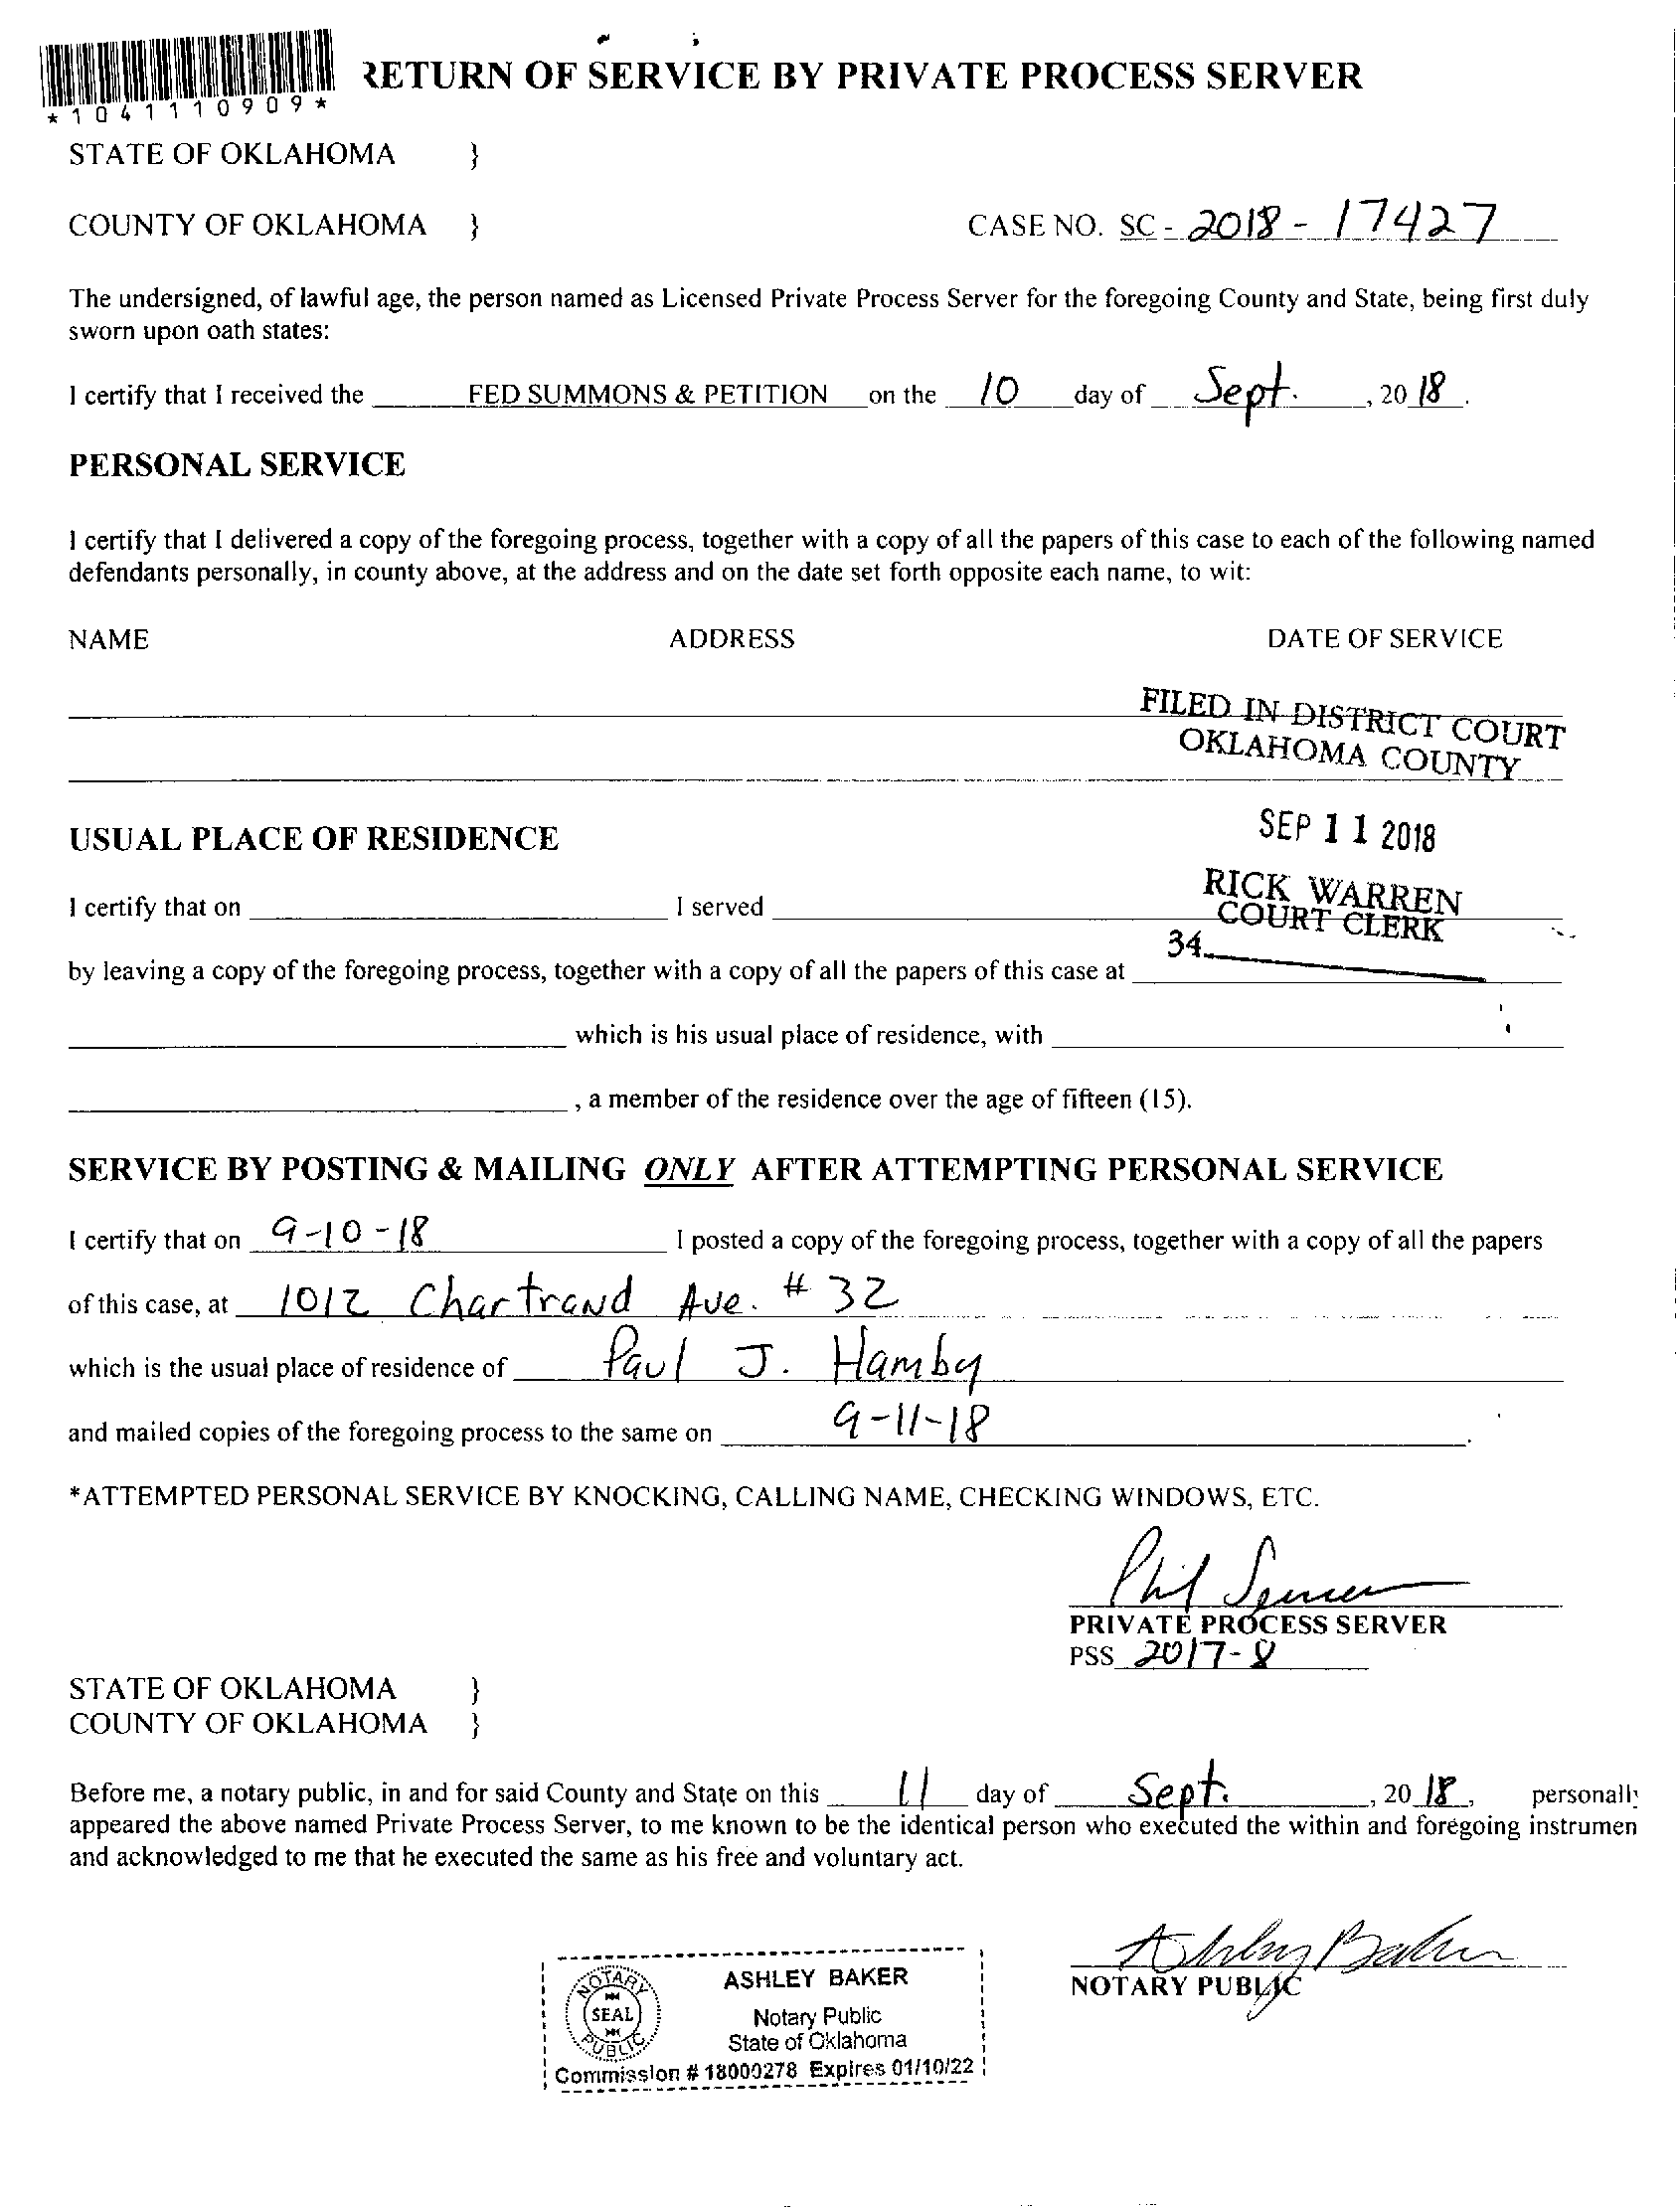 RETURN OF SERVICE BY PRIVATE PROCESS SERVER
*1041110909*
STATE OF OKLAHOMA }
COUNTY OF OKLAHOMA } CASE NO. SC - 2018 - 17427
The undersigned, of lawful age, the person named as Licensed Private Process Server for the foregoing County and State, being first duly
sworn upon oath states:
I certify that I received the FED SUMMONS & PETITION on the 10 day of Sept. , 20 18 .
PERSONAL SERVICE
I certify that I delivered a copy of the foregoing process, together with a copy of all the papers of this case to each of the following named
defendants personally, in county above, at the address and on the date set forth opposite each name, to wit:
NAME ADDRESS DATE OF SERVICE
FILED IN DISTRICT COURT
OKLAHOMA COUNTY
SEP 11 2018
USUAL PLACE OF RESIDENCE
RICK WARREN
COURT CLERK
I certify that on I served
34
by leaving a copy of the foregoing process, together with a copy of all the papers of this case at
which is his usual place of residence, with
, a member of the residence over the age of fifteen (15).
SERVICE BY POSTING & MAILING ONLY AFTER ATTEMPTING PERSONAL SERVICE
I certify that on 9-10-18 I posted a copy of the foregoing process, together with a copy of all the papers
of this case, at 1012 Chartrand Ave. # 32
which is the usual place of residence of Paul J. Hamby
and mailed copies of the foregoing process to the same on 9-11-18 .
*ATTEMPTED PERSONAL SERVICE BY KNOCKING, CALLING NAME, CHECKING WINDOWS, ETC.
Phil Spencer
PRIVATE PROCESS SERVER
PSS 2017-8
STATE OF OKLAHOMA }
COUNTY OF OKLAHOMA }
Before me, a notary public, in and for said County and State on this 11 day of Sept. , 20 18 , personally
appeared the above named Private Process Server, to me known to be the identical person who executed the within and foregoing instrumen
and acknowledged to me that he executed the same as his free and voluntary act.
Ashley Baker
NOTARY PUBLIC
NOTARY SEAL PUBLIC
ASHLEY BAKER
Notary Public
State of Oklahoma
Commission # 18000278 Expires 01/10/22